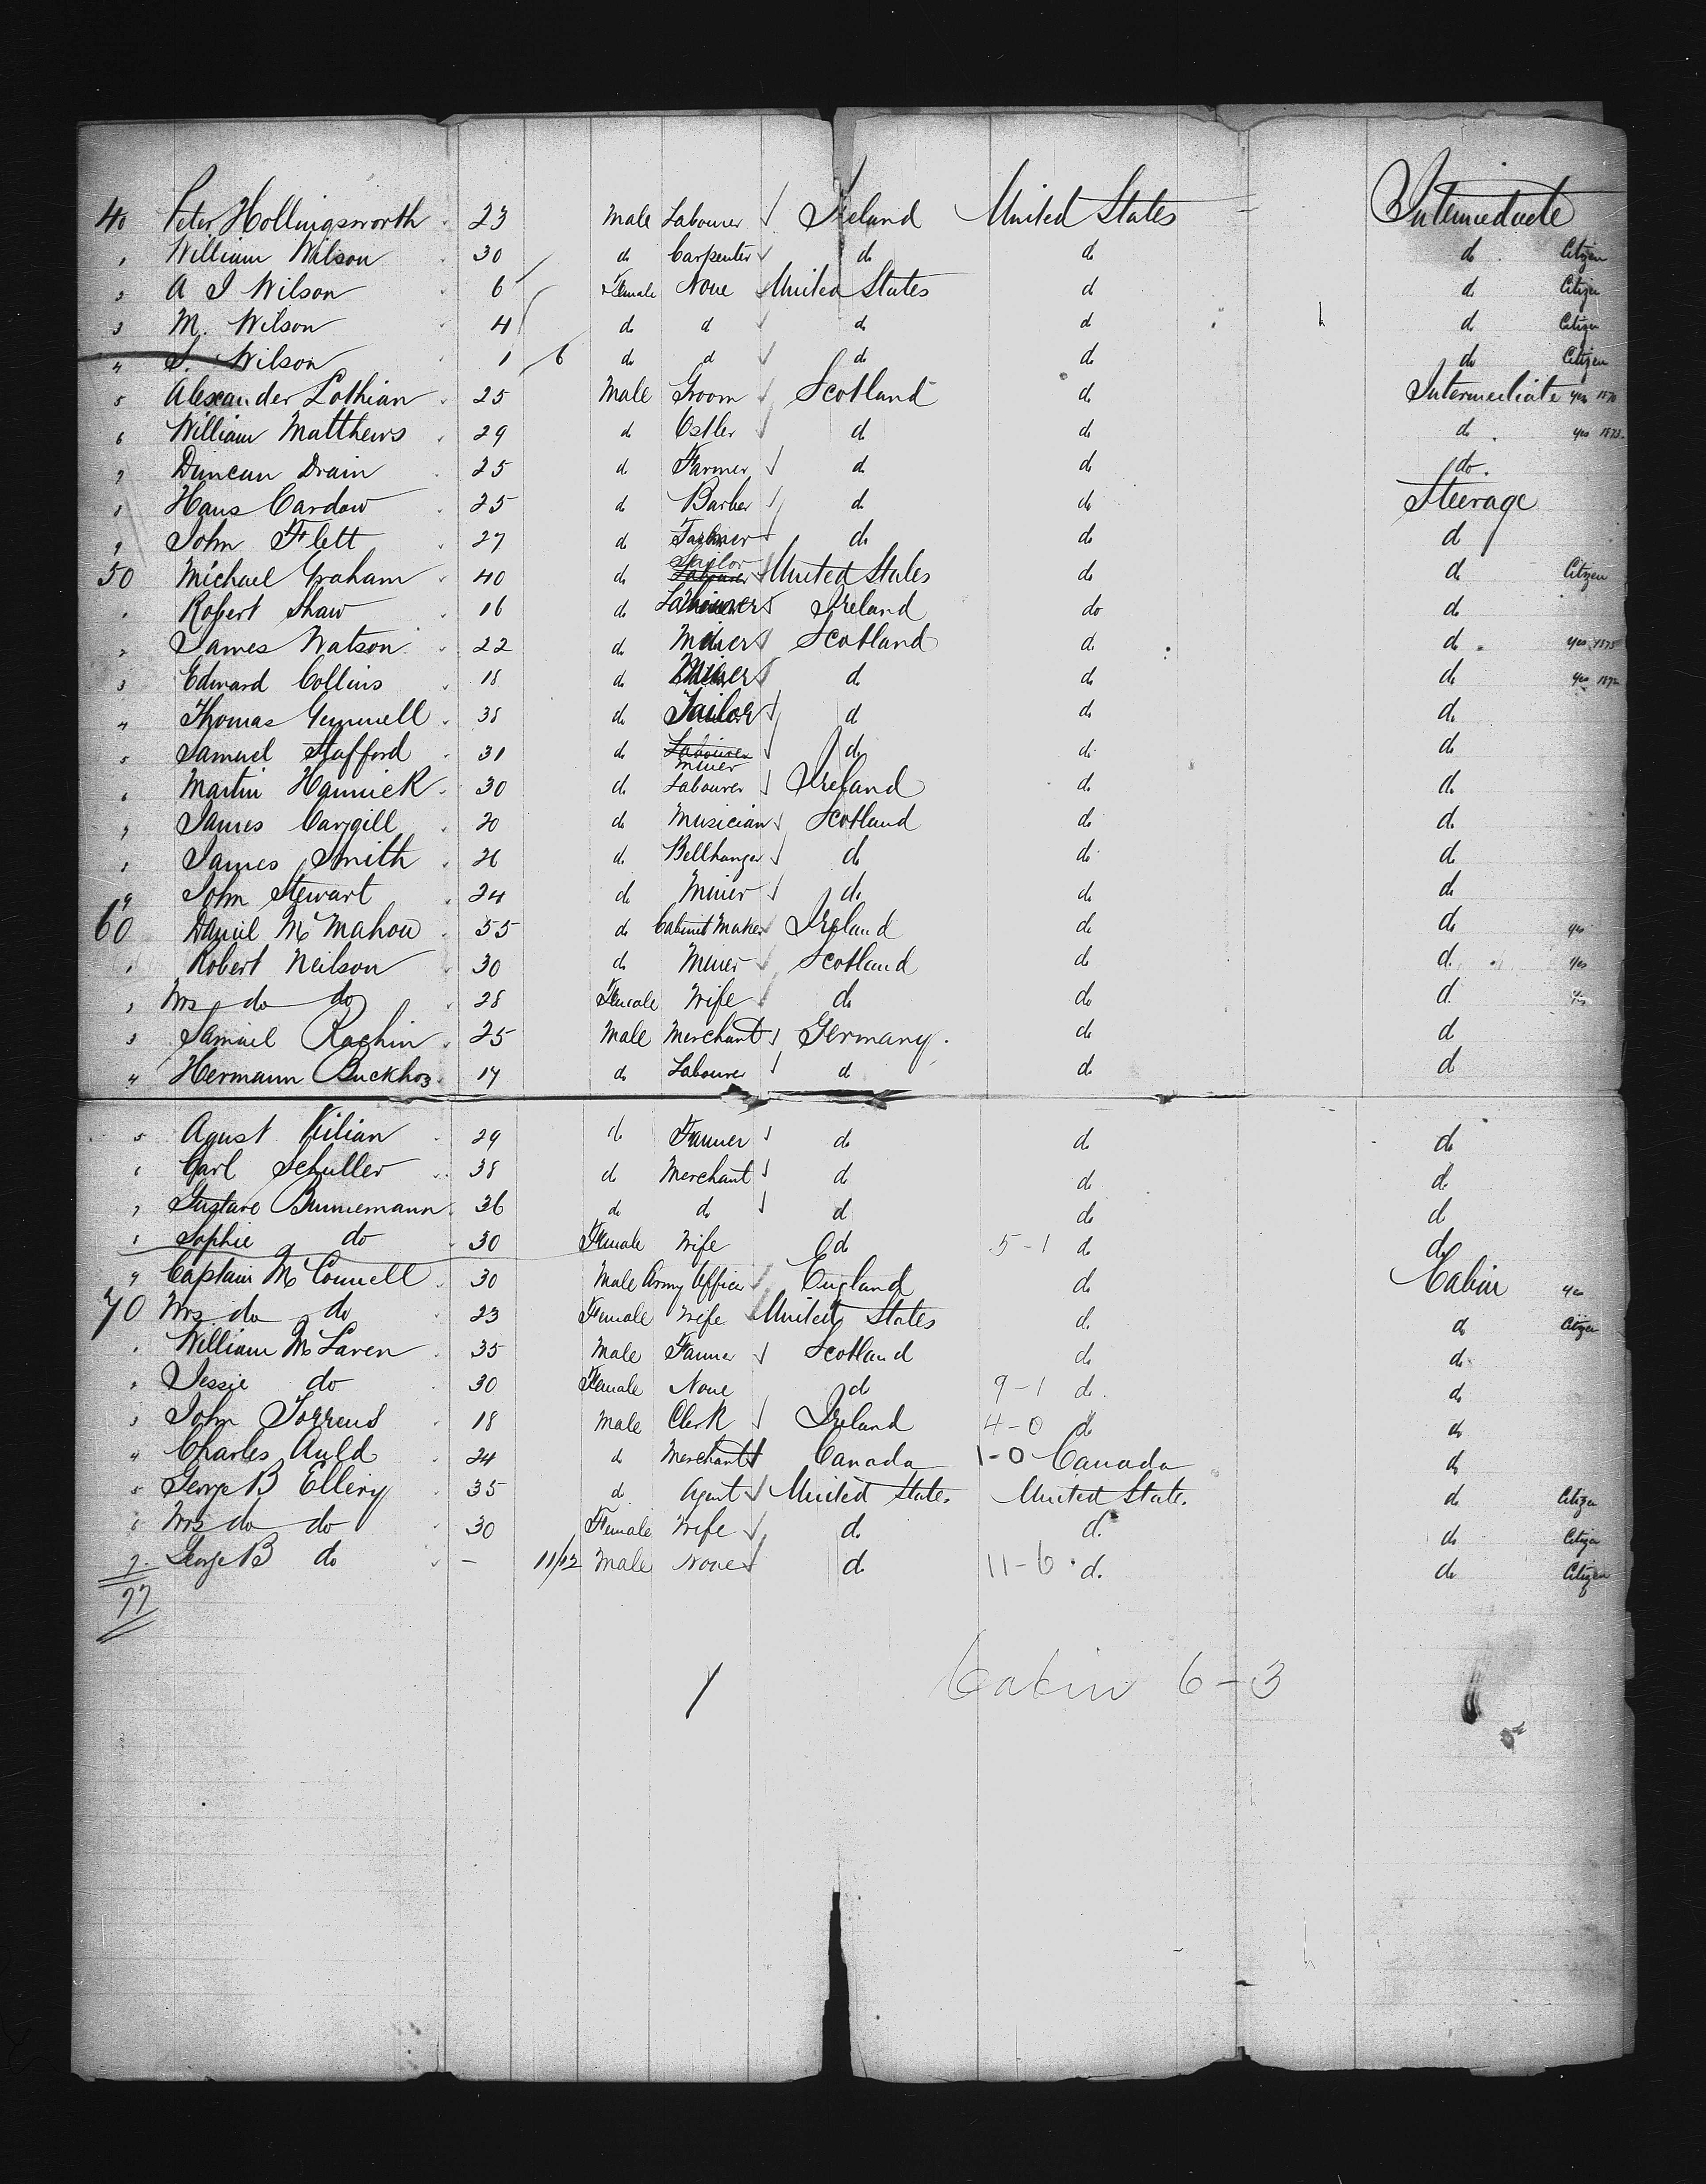 40 Peter Hollingsworth 23 Male Labourer Ireland United States Intermediate
1 William Wilson 30 do Carpenter do do do Citizen
2 A J Wilson 6 Female None United States do do Citizen
3 M. Wilson 4 do do do do do Citizen
4 S. Wilson 1 6 do do do do do Citizen
5 Alexander Lothian 25 Male Groom Scotland do Intermediate yes 1870
6 William Matthews 29 do Ostler do do do yes 1873.
7 Duncan Drain 25 do Farmer do do do.
8 Hans Cardow 25 do Barber do do Steerage
9 John Flett 27 do do do do
50 Michael Graham 40 do Labourer Sailor United States do do Citizen
1 Robert Shaw 16 do Labourer Ireland do do
2 James Watson 22 do Miner Scotland do do yes 1875
3 Edward Collins 18 do Miner do do do yes
4 Thomas Gemmell 38 do Tailor do do do
5 Samuel Stafford 31 do Labourer Miner do do do
6 Martin Hannick 30 do Labourer Ireland do do
7 James Cargill 20 do Musician Scotland do do
8 James Smith 26 do Bellhanger do do do
9 John Stewart 24 do Miner do do do
60 Daniel McMahon 55 do Cabinet Maker Ireland do do yes
1 Robert Neilson 30 do Miner Scotland do do yes
2 Mrs do do 28 Female Wife do do do yes
3 Samuel Rachin 25 Male Merchant Germany. do do
4 Hermann Buckhoz 17 do Labourer do do do
5 Agust Kilian 29 do Farmer do do do
6 Carl Schuller 38 do Merchant do do do
7 Gustave Bunnemann 36 do do do do do
8 Sophie do 30 Female Wife do 5-1 do do
9 Captain McConnell 30 Male Army Officer England do Cabin yes
70 Mrs do do 23 Female Wife United States do do Citizen
1 William McLaren 35 Male Farmer Scotland do do
2 Jessie do 30 Female None do 9-1 do do
3 John Torrens 18 Male Clerk Ireland 4-0 do do
4 Charles Auld 24 do Merchant Canada 1-0 Canada do
5 George B Ellery 35 do Agent United States United States do Citizen
6 Mrs do do 30 Female Wife do do do Citizen
7 George B do - 11/12 Male None do 11-6 do do Citizen
77
Cabin 6-3